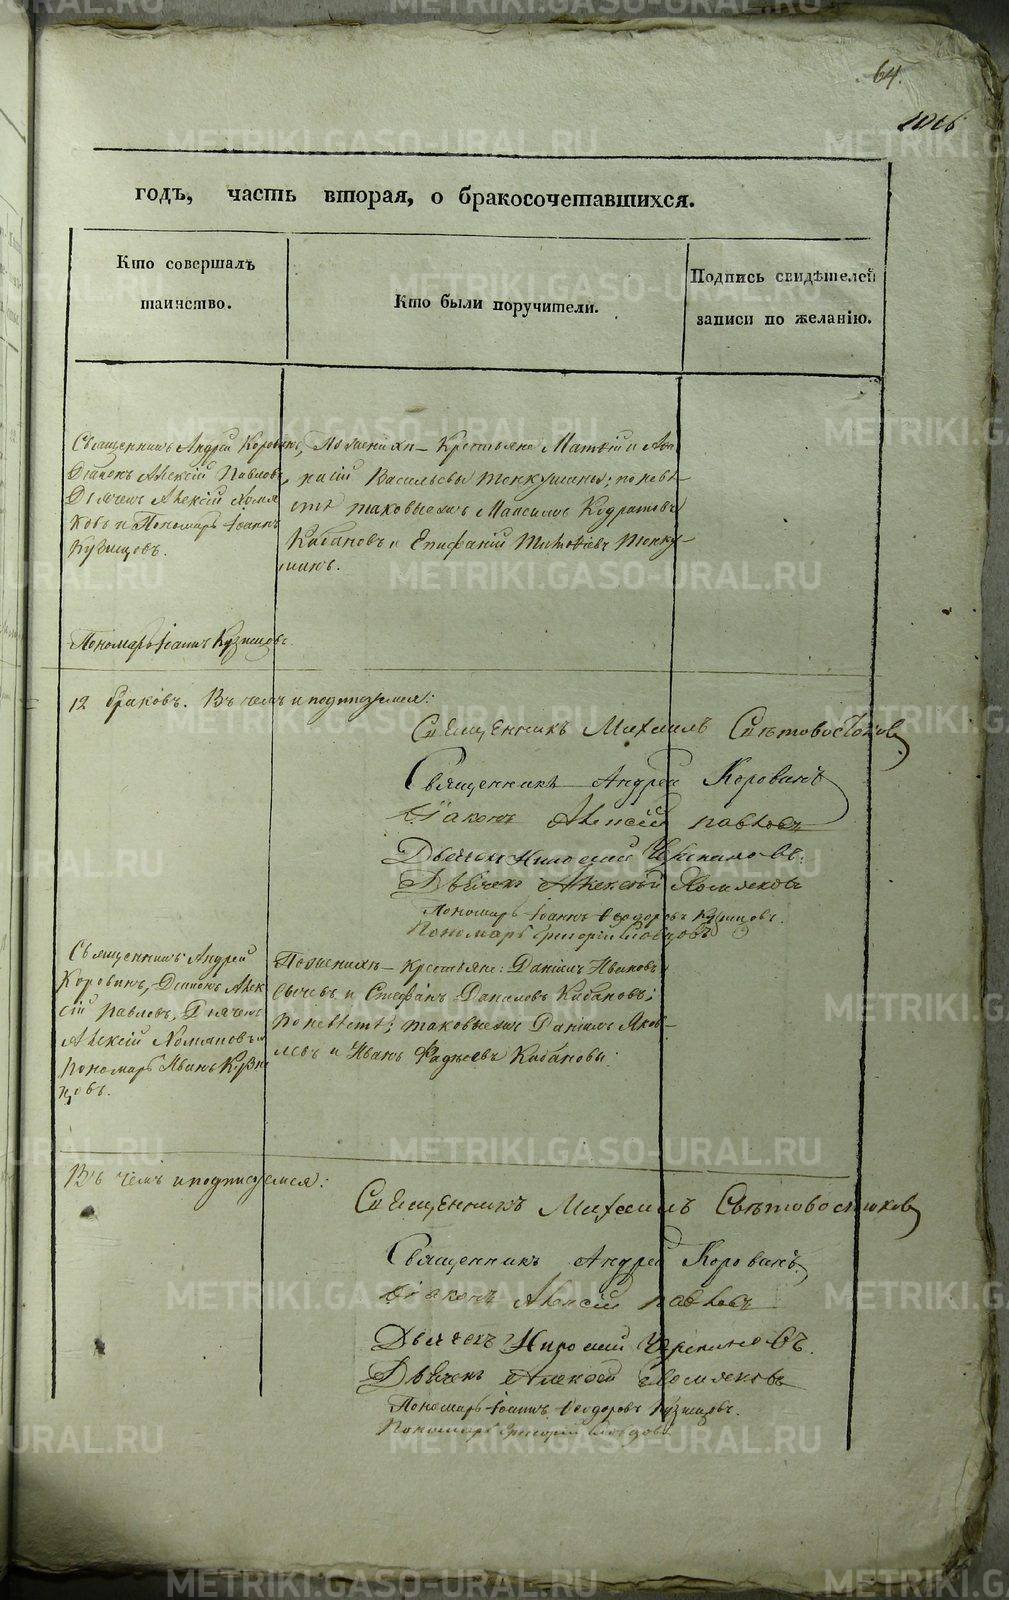 64.
годъ, часть вторая, о бракосочетавшихся.
Кто совершалъ
таинство.
Кто были поручители.
Подпись свидѣтелей
записи по желанію.
Священникъ Андрей Коровинъ,
Діаконъ Алексій Павловъ,
Дьячекъ Алексій Хомя
ковъ и Пономарь Іоаннъ
Кузнецовъ.
По женихѣ Крестьяне Матвѣй и
Васильевы по невѣ-
стѣ таковыежъ Максимъ
Кабановъ и Епифаній
Пономарь Іоаннъ Кузнецовъ.
12 браковъ. Въ чемъ и подписуемся:
Священникъ Михаилъ Свѣтовостоковъ
Священникъ Андрей Коровинъ
Діаконъ Алексій Павловъ
Дьячекъ
Дьячекъ Алексѣй Хомяковъ
Пономарь Іоаннъ Ѳеодоровъ Кузнецовъ.
Пономарь Григорій
Священникъ Андрей
Коровинъ, Діаконъ Алек
сій Павловъ, Дьячекъ
Алексій Хомяковъ и
Пономарь Иванъ Кузне
цовъ.
По женихѣ – крестьяне: Даніилъ Ивановъ
и Стефанъ Даниловъ Кабановъ;
по невѣстѣ; таковыежъ Даніилъ Яков-
левъ и Иванъ Фадѣевъ Кабановы:
Въ чемъ и подписуемся:
Священникъ Михаилъ Свѣтовостоковъ
Священникъ Андрей Коровинъ
Діаконъ Алексій Павловъ
Дьячекъ
Дьячекъ Алексѣй Хомяковъ
Пономарь Іоаннъ Ѳеодоровъ Кузнецовъ.
Пономарь Григорій
METRIKI.GASO-URAL.RU